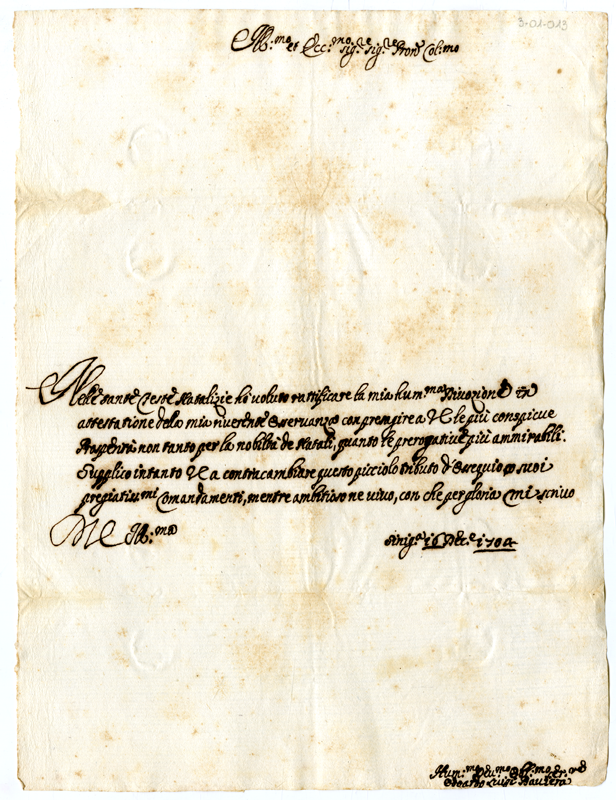 3-01-013
Ill:mo et Ecc:mo Sig:e Sig:e Pron Col:mo
Nelle sante feste Natalizie hò voluto rattificare la mia hum:ma Divozione in
attestatione della mia riverente osservanza con pregare a VE le più conspicue
prosperità non tanto per la nobiltà de Natali, quanto le prerogative più ammirabili.
Supplico intanto VE a contracambiare questo picciolo tributo d'Ossequio co suoi
pregiatiss:mi Comandamenti, mentre ambitioso ne vivo, con che per gloria mi scrivo
Di VE Ill:ma
16 Dec:e 1704
Hum:mo Deu:mo Obl:mo Ser:re
Luigi